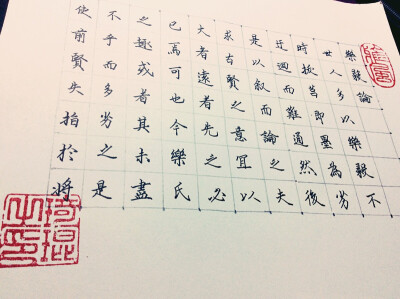 樂毅論
世人多以樂毅不
時拔莒即墨為劣
迂迴而難通然後
是以叙而論之夫
求古賢之意宜以
大者遠者先之必
已焉可也今樂氏
之趣或者其未盡
不乎而多劣之是
使前賢失指於將